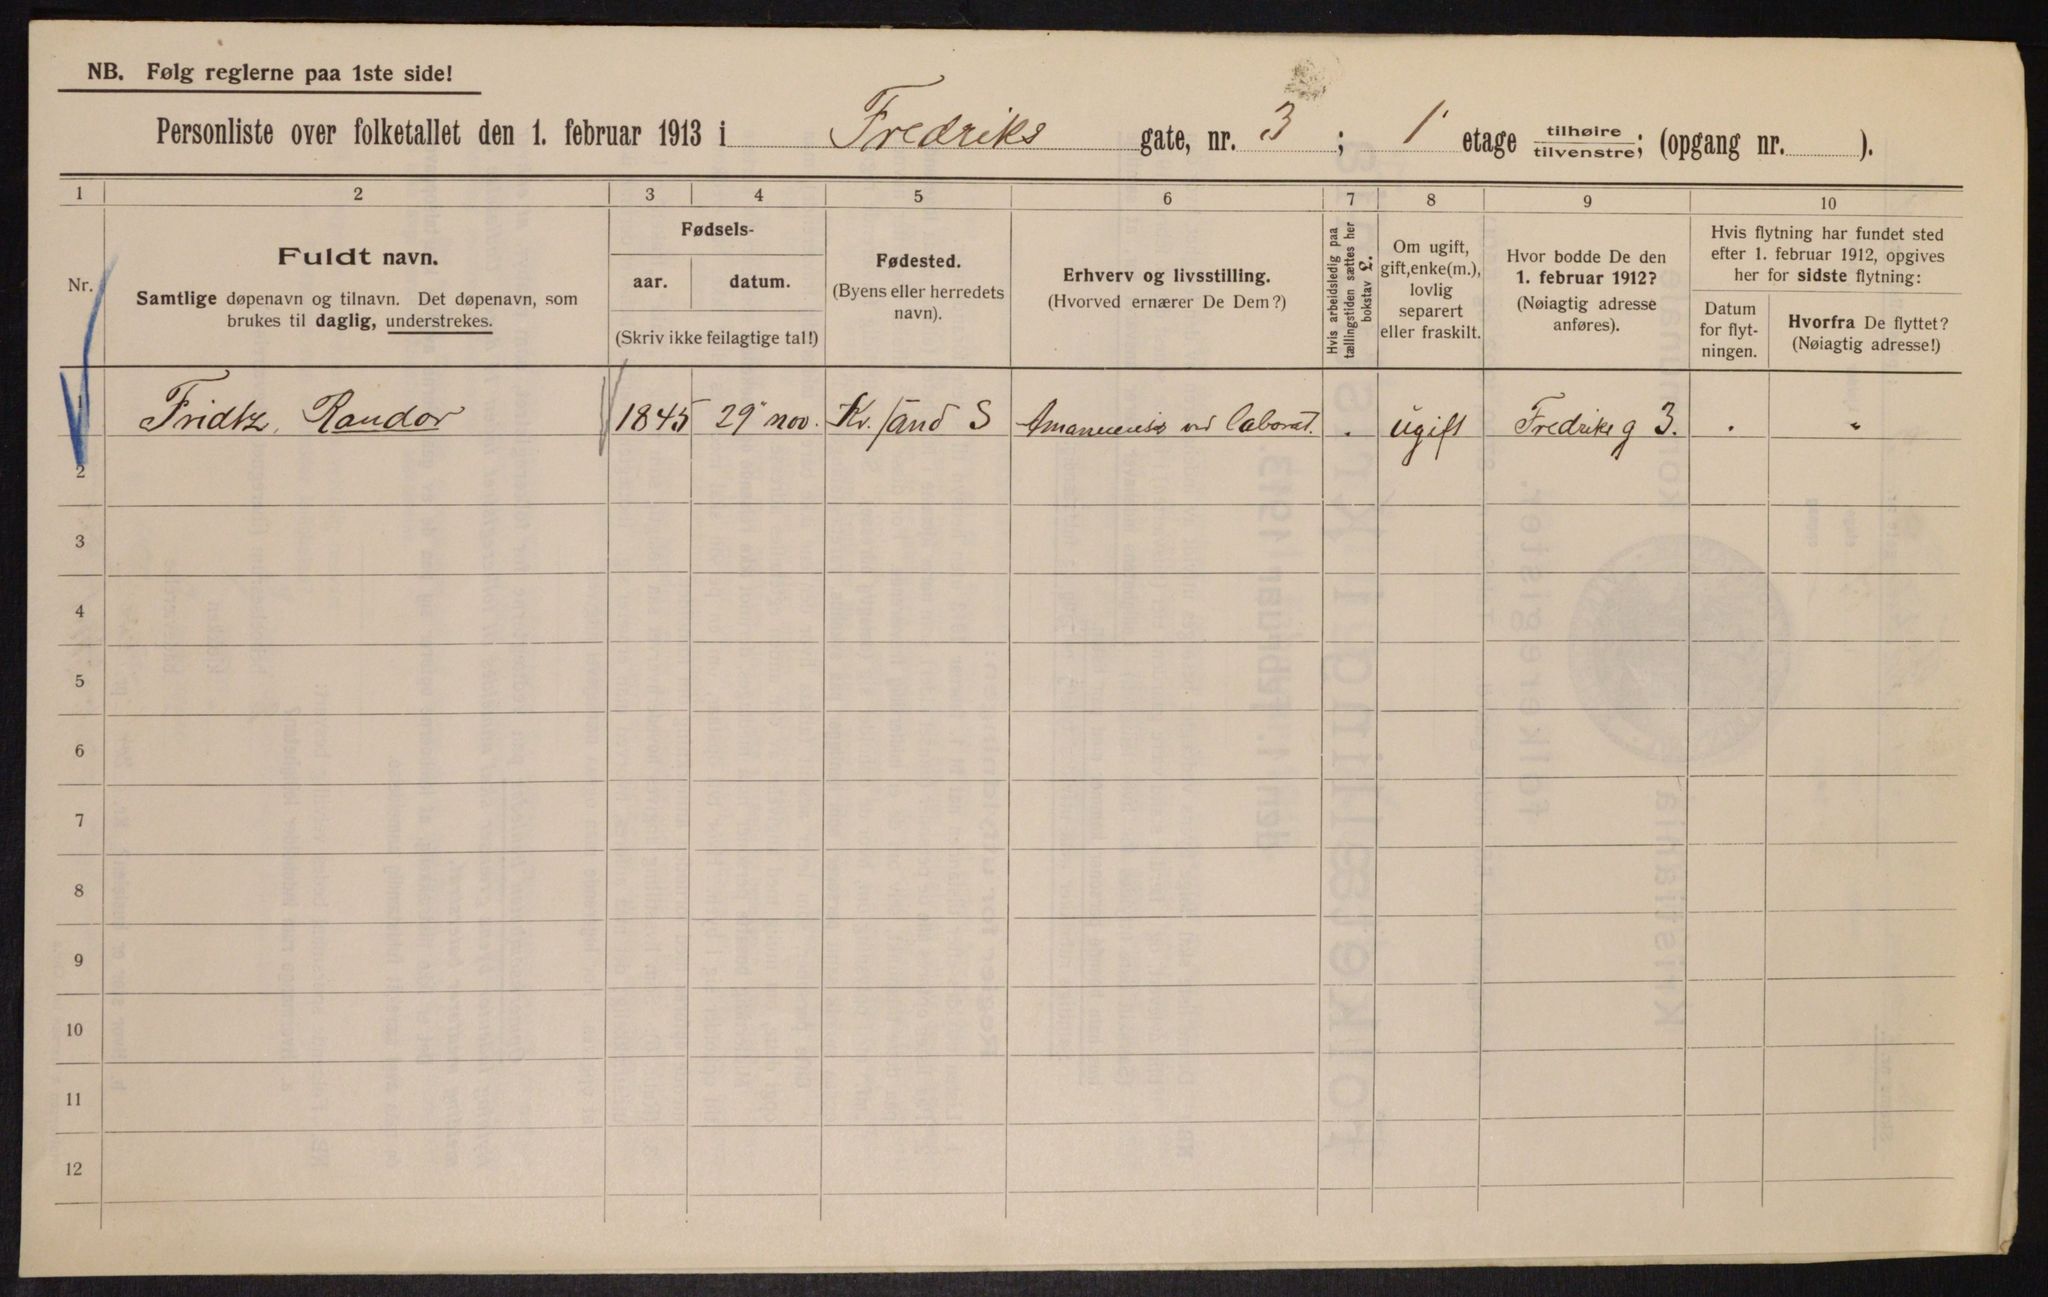 NB. Følg reglerne paa 1ste side!
Personliste over folketallet den 1. februar 1913 i Fredriks gate, nr. 3 ; 1 etage tilhøire tilvenstre; (opgang nr. ).
1 2 3 4 5 6 7 8 9 10
Nr.
Fuldt navn.
Samtlige døpenavn og tilnavn. Det døpenavn, som
brukes til daglig, understrekes.
Fødsels-
aar. datum.
(Skriv ikke feilagtige tal!)
Fødested.
(Byens eller herredets
navn).
Erhverv og livsstilling.
(Hvorved ernærer De Dem?)
Hvis arbeidsledig paa
tællingstiden sættes her
bokstav L.
Om ugift,
gift, enke(m.),
lovlig
separert
eller fraskilt.
Hvor bodde De den
1. februar 1912?
(Nøiagtig adresse
anføres).
Hvis flytning har fundet sted
efter 1. februar 1912, opgives
her for sidste flytning:
Datum
for flyt-
ningen.
Hvorfra De flyttet?
(Nøiagtig adresse!)
1 Fridtz, Randor 1845 29 nov. Kr.sand S Amanuensis ved laborat. . ugift Fredriks g 3. . "
2
3
4
5
6
7
8
9
10
11
12